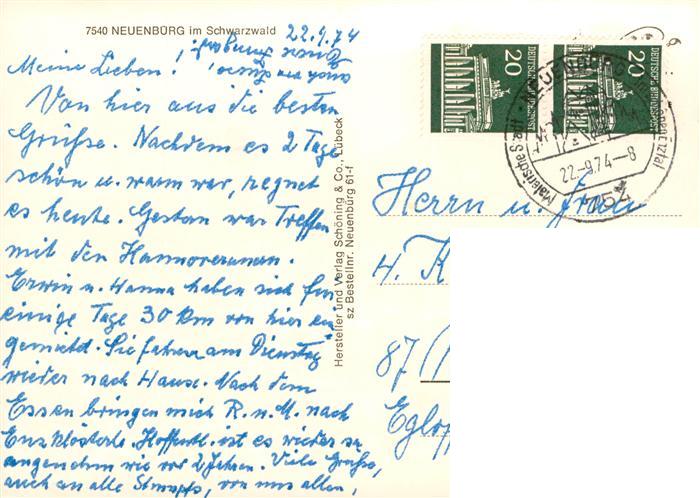 7540 NEUENBÜRG im Schwarzwald
22.9.74
Meine Lieben!
Von hier aus die besten
Grüße. Nachdem es 2 Tage
schön u. warm war, regnet
es heute. Gestern war Treffen
mit den Hannoveranern.
Erwin u. Hanna haben sich für
einige Tage 30 km von hier ein
gemietet. Sie fahren am Dienstag
wieder nach Hause. Nach dem
Essen bringen mich R. u. M. nach
Enzklösterle. Hoffentl. ist es wieder so
angenehm wie vor 2 Jahren. Viele Grüße,
auch an alle Strupps, von uns allen,
Hersteller und Verlag Schöning & Co., Lübeck
sz Bestellnr. Neuenbürg 61-f
20 DEUTSCHE BUNDESPOST
20 DEUTSCHE BUNDESPOST
NEUENBÜRG
22.-9.74-8
Malerische
Herrn u. Frau
H. K
87/
Eglof